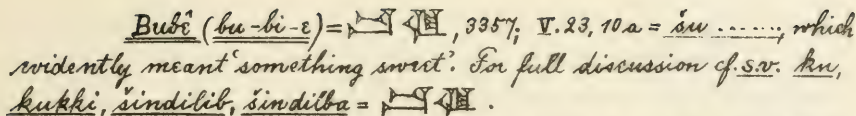 Bubê (bu-bi-e) = , 3357; V. 23, 10 a = šu ......, which
evidently meant 'something sweet'. For full discussion cf. s.v. ku,
kukki, šindilib, šindilba = .